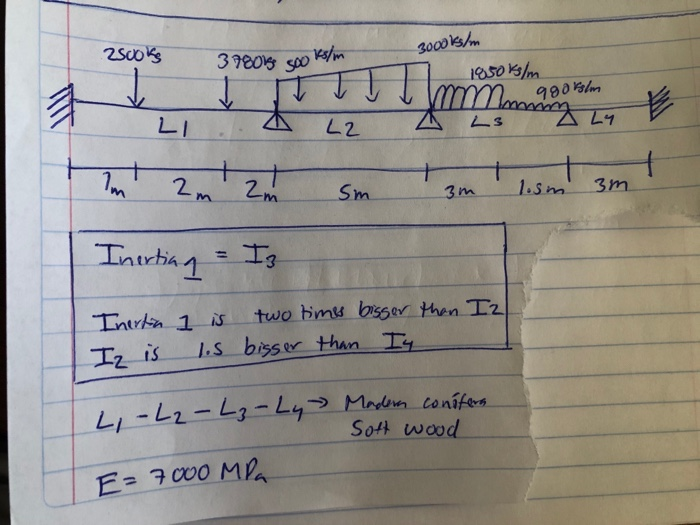 2500 Kg 3780 Kg 500 Kg/m 3000 Kg/m
1850 Kg/m
980 Kg/m
L1 L2 L3 L4
1m 2m 2m 5m 3m 1.5m 3m
Inertia 1 = I3
Inertia 1 is two times bigger than I2
I2 is 1.5 bigger than I4
L1 - L2 - L3 - L4 → Madera conifera
Soft wood
E = 7000 MPa